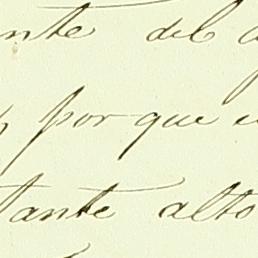 nte del
por que
tante alto